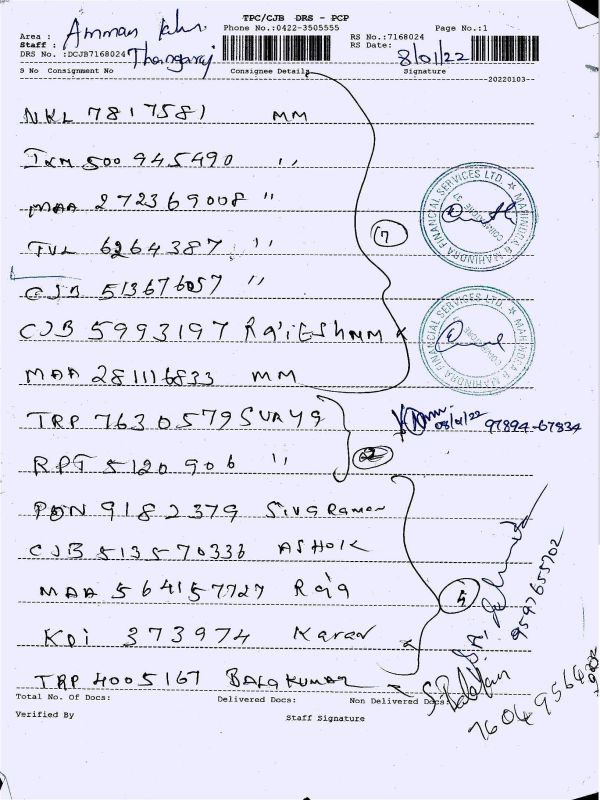 TPC/CJB DRS - PCP
Area : Amman
Phone No.:0422-3505555
Page No.:1
Staff : Thangaraj
RS No.:7168024
DRS No. :DCJB7168024
RS Date: 8/01/22
S No Consignment No Consignee Details Signature
20220103
NKL 7817581 MM
TKM 500945490 ''
MAA 272369008 ''
TVL 6264387 ''
CJB 513676057 ''
CJB 5993197 RajESHMM K
MAA 281116833 MM
7
MAHINDRA & MAHINDRA FINANCIAL SERVICES LTD.
COIMBATORE
MAHINDRA & MAHINDRA FINANCIAL SERVICES LTD.
COIMBATORE
TRP 7630579 SUAYA
RPT 5120906 ''
2
08/01/22 97894-67834
PDN 9182379 SivaRaman
CJB 513570336 ASHOK
MAA 564157727 Raja
KDI 373974 Karan
TRP 4005167 BALAKUMAR
5
9597655702
Total No. Of Docs: Delivered Docs: Non Delivered Docs:
Verified By Staff Signature